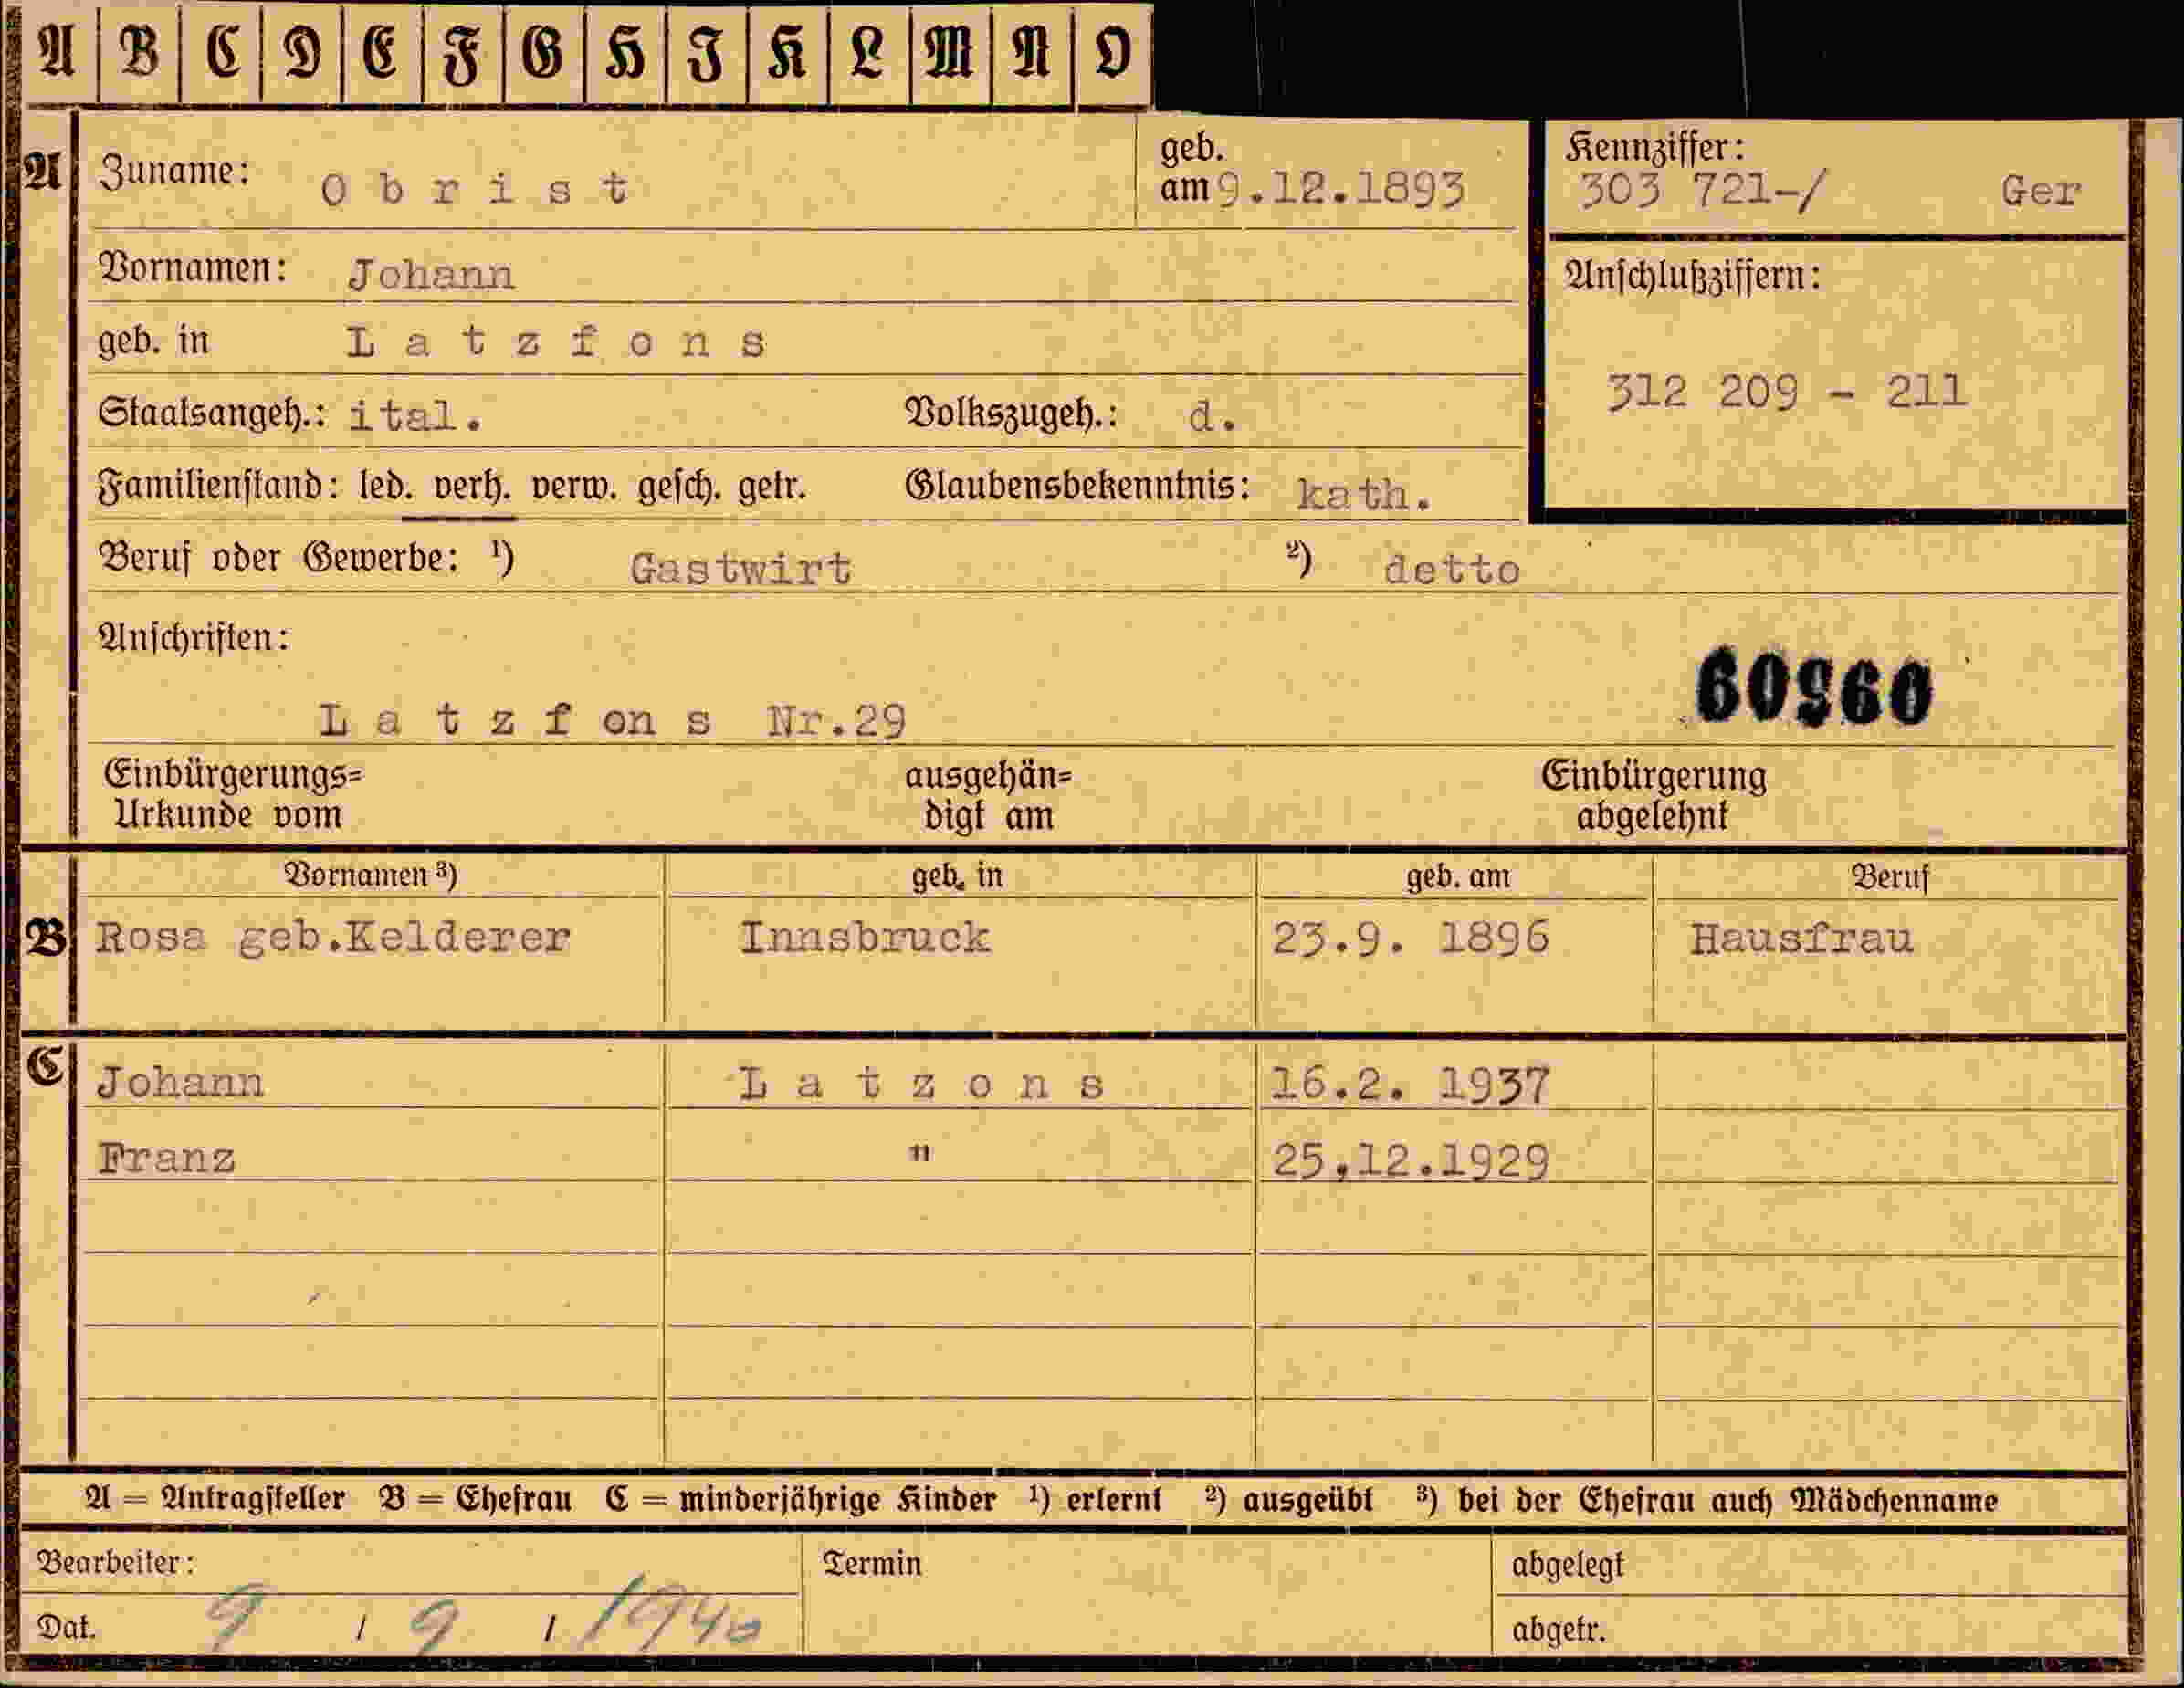 A B C D E F G H I K L M N O
A Zuname: O b r i s t geb. am 9.12.1893
Kennziffer: 303 721-/ Ger
Vornamen: Johann
Anschlußziffern:
geb. in L a t z f o n s
312 209 - 211
Staatsangeh.: ital. Volkszugeh.: d.
Familienstand: led. verh. verw. gesch. getr. Glaubensbekenntnis: kath.
Beruf oder Gewerbe: ¹) Gastwirt ²) detto
Anschriften:
L a t z f on s Nr.29
Einbürgerungs= ausgehän= Einbürgerung
Urkunde vom digt am abgelehnt
Vornamen ³) geb. in geb. am Beruf
B Rosa geb.Kelderer Innsbruck 23.9. 1896 Hausfrau
C Johann L a t z o n s 16.2. 1937
Franz " 25,12.1929
A = Antragsteller B = Ehefrau C = minderjährige Kinder ¹) erlernt ²) ausgeübt ³) bei der Ehefrau auch Mädchenname
Bearbeiter: Termin abgelegt
Dat. 9 / 9 / 1940 abgetr.